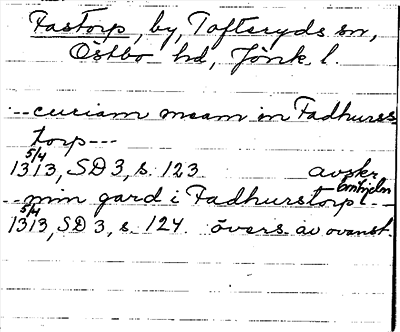 Fastorp, by, Tofteryds sn,
Östbo hd, Jönk. l.
--curiam meam in Fadhurss
torp---
5/4
1313, SD 3, s. 123. avskr.
--min gard i Fadhurstorp---
5/4
1313, SD 3, s. 124. övers. av ovanst.